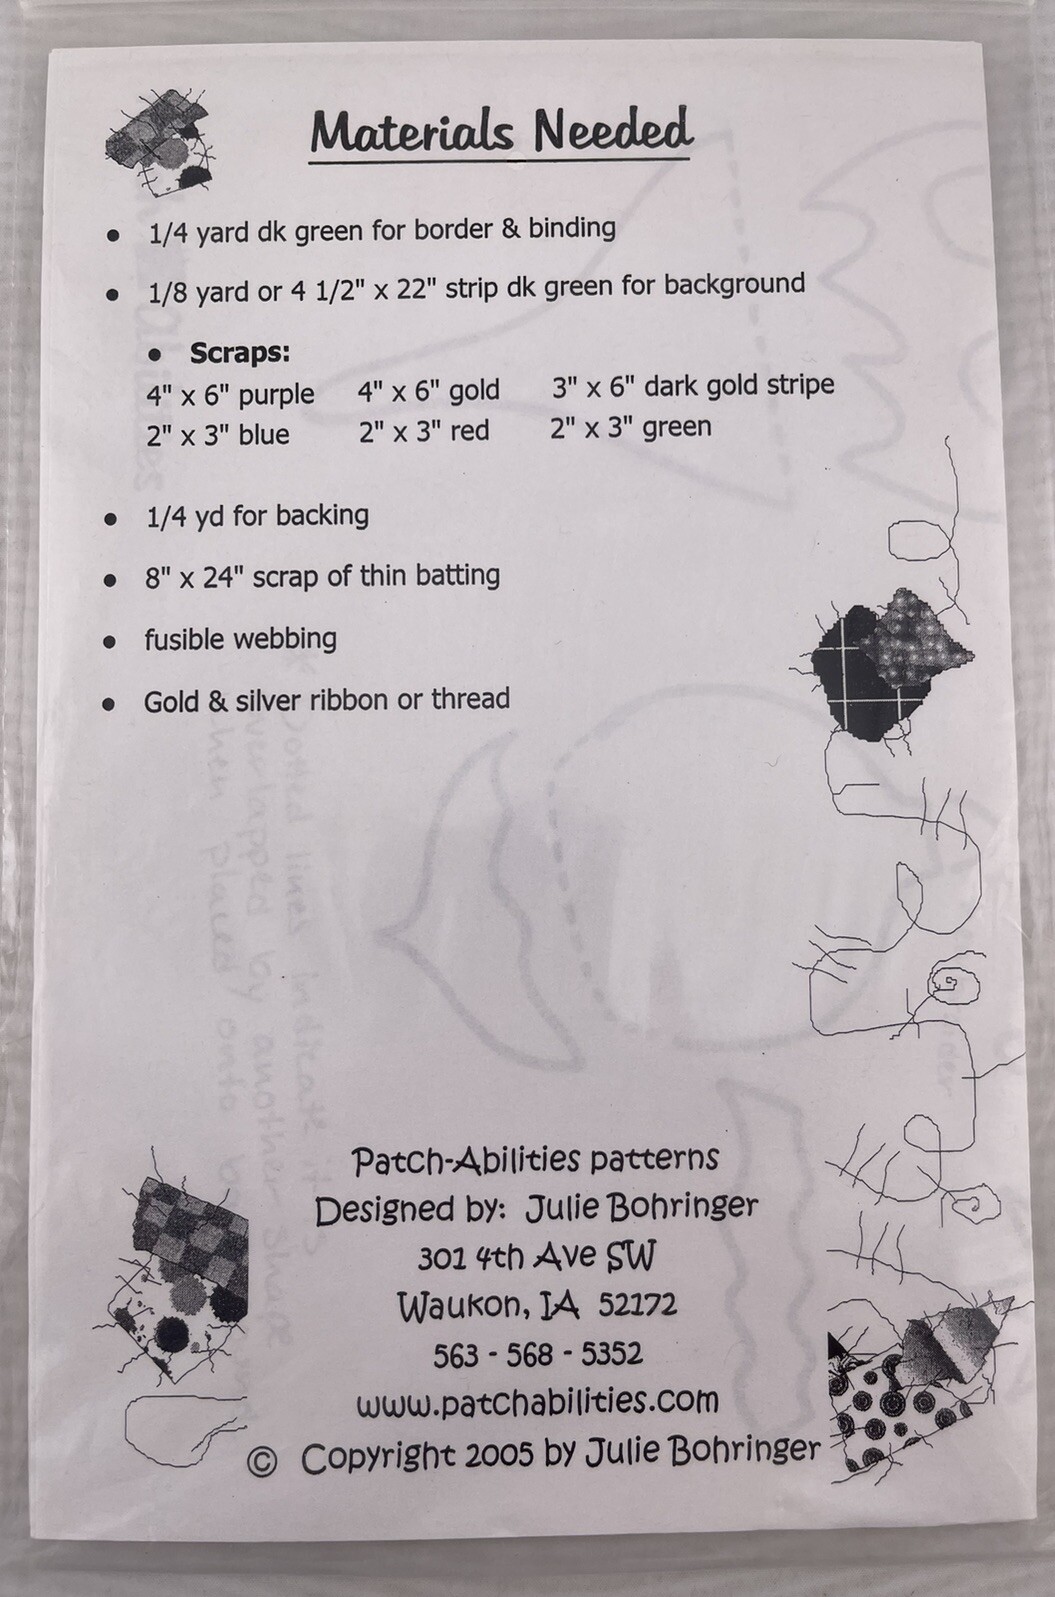 Materials Needed
• 1/4 yard dk green for border & binding
• 1/8 yard or 4 1/2" x 22" strip dk green for background
• Scraps:
4" x 6" purple 4" x 6" gold 3" x 6" dark gold stripe
2" x 3" blue 2" x 3" red 2" x 3" green
• 1/4 yd for backing
• 8" x 24" scrap of thin batting
• fusible webbing
• Gold & silver ribbon or thread
Dotted lines indicate it is
overlapped by another shape
when placed onto
Patch-Abilities patterns
Designed by: Julie Bohringer
301 4th Ave SW
Waukon, IA 52172
563 - 568 - 5352
www.patchabilities.com
© Copyright 2005 by Julie Bohringer